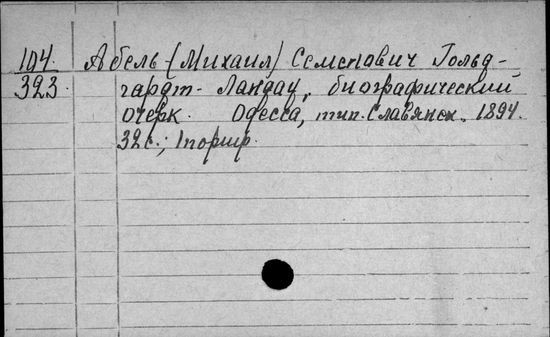 104. Абель (Михаил) Семенович Гольд-
323 гардт-Ландау, биографический
очерк. Одесса, тип. Славянск. 1894.
32 с.; 1 портр.